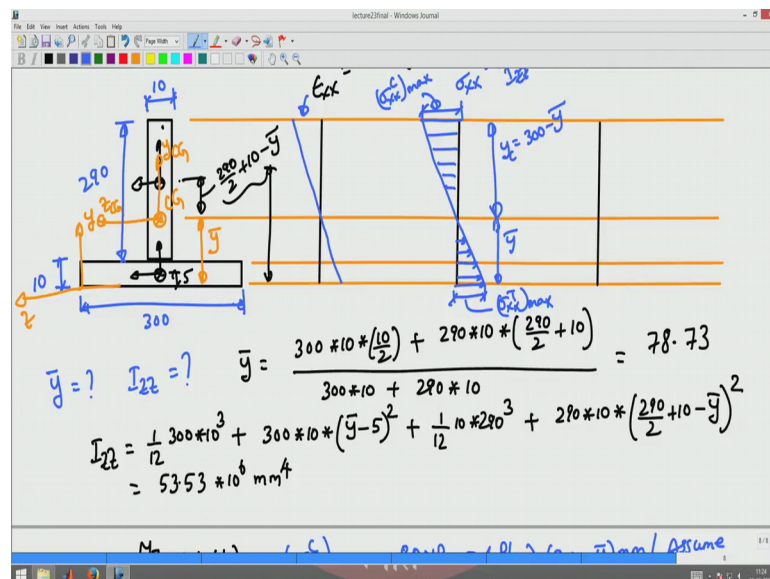 lecture23final - Windows Journal
File Edit View Insert Actions Tools Help
Page Width
B I
10
ε_xx =
(σ_xx^C)max
σ_xx
I_zz
290
y_CG
290/2 + 10 - ȳ
y_c = 300 - ȳ
z_CG
CG
y
ȳ
ȳ
10
5
z
300
(σ_xx^T)max
ȳ = ? I_zz = ?
ȳ = (300 * 10 * (10/2) + 290 * 10 * (290/2 + 10)) / (300 * 10 + 290 * 10) = 78.73
I_zz = 1/12 300*10^3 + 300 * 10 * (ȳ - 5)^2 + 1/12 10 * 290^3 + 290 * 10 * (290/2 + 10 - ȳ)^2
= 53.53 * 10^6 mm^4
Assume
8/8
11:24